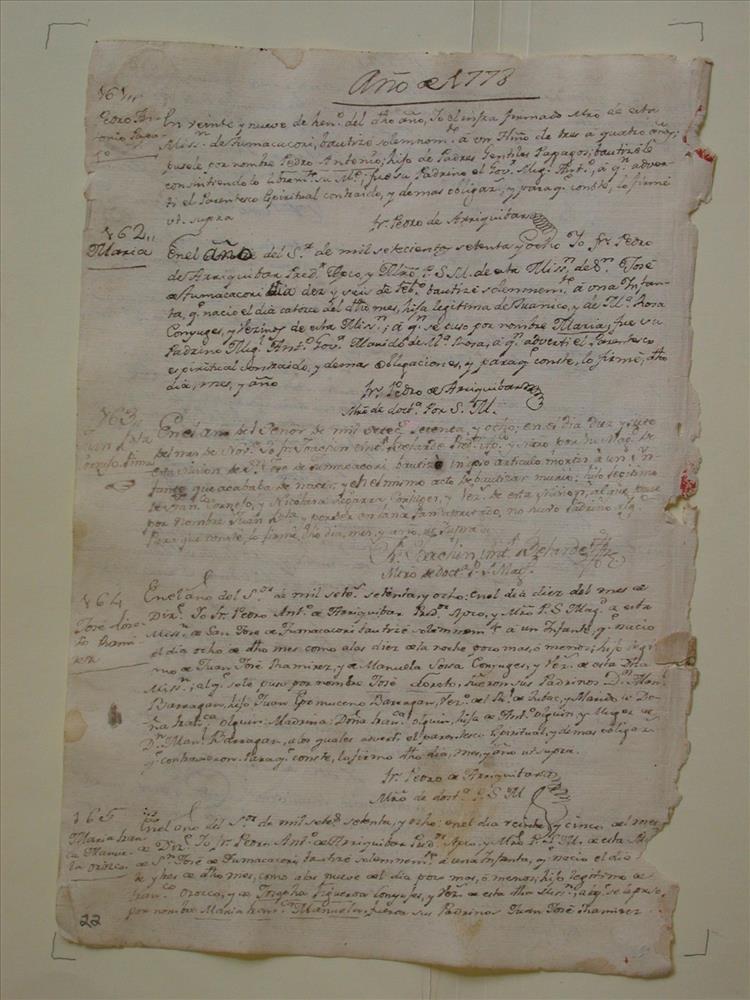 Año de 1778
161,,
Pedro An-
tonio Papa-
go
En veinte y nueve de hen.º del dho año, Yo el infra firmado Mrō de esta
Miss.ⁿ de Tumacacori, bautizè solemnem.te á un Niño de tres a quatro años,
pusele por nombre Pedro Antonio; hijo de Padres Gentiles Papagos; bautizèle
consintiendolo librem.te su M.e; fue su Padrino el Gov.r Mig.l Ant.º, á q.n adver-
ti el Parentesco Espiritual contraido, y demas obligac.s, y paraq.e conste, lo firmè
ut supra
Fr. Pedro de Arriquibar
162,,
Maria
En el año del S.r de mil setecientos setenta y ocho Yo Fr. Pedro
de Arriquibar Pred.r Apco, y Mrō P. S. M. de esta Miss.n de S.n José
de Tumacacori dia diez y seis de feb.º bautizè solemnem.te á una Infan-
ta, q.e nacio el dia catorce del dho mes, hija legitima de Juanico, y de M.a Rosa
Conyuges, y Vezinos de esta Miss.n; á q.n se puso por nombre Maria; fue su
Padrino Mig.l Ant.º Gov.r Marido de M.a Rosa, á q.n adverti el Parentesco
espiritual contraido, y demas obligaciones, y paraq.e conste, lo firmè, dho
dia, mes, y año
Fr. Pedro de Arriquibar
Mrō de doct.a Por S. M.
163,,
En el año del Señor de mil setec.s setenta, y ocho; en el dia Diez y siete
del mes de Nov.e Yo Fr. Joachin Ant.º Belarde Pred.r Apco, y Mrō por su Mag.d de
esta Mision de S.n José de Tumacacori bautizè in ipso articulo mortis à un In-
fante que acababa de nacer, y en el mismo acto de bautizar murió; hijo legitimo
de Fran.co Cornejo, y Nicolasa Conyuges, y Vez.s de esta Mision, al que puse
por Nombre Juan y por ser en tan no huvo Padrino alg.º
Para que conste, lo firmè dho dia, mes, y año, ut supra
Fr. Joachin Ant.º Belarde
Mrō de Doct.a P. S. Mag.d
164
José Lore-
to Rami-
rez
En el año del S.or de mil setec.s setenta, y ocho: en el dia diez del mes de
Diz.e Yo Fr. Pedro Ant.º de Arriquibar Pred.r Apco, y Mrō P. S. Mag.d de esta
Miss.n de San José de Tumacacori bautizè solemnem.te á un Infante, q.e nacio
el dia ocho de dho mes como a las diez de la noche poco mas, ó menos; hijo legiti-
mo de Juan José Ramirez, y de Manuela Sosa Conyuges, y Vez.s de esta dha
Miss.n; al q.e sele puso por nombre José Loreto, fueron sus Padrinos D.n Man.l
Barragan, hijo Juan Epomuceno Barragan, Vez.º del Pu.º de Tubac, y Marido de Do-
ña Fran.ca Olguin: Madrina: Doña Fran.ca Olguin, hija de Ant.º Olguin, y Muger de
D.n Man.l Barragan, a los quales advertì el parentesco Espiritual, y demas obligac.s
q.e contraxeron. Paraq.e conste, lo firmo dho dia, mes, y año ut supra.
Fr. Pedro de Arriquibar
Mrō de doct.a P. S. M.
165
Maria Fran-
ca Manue-
la Orozco
En el año del S.or de mil setec.s setenta, y ocho: en el dia veinte y cinco del mes
de Diz.e Yo Fr. Pedro Ant.º de Arriquibar Pred.r Apco, y Mrō P. S. M. de esta
de S.n José de Tumacacori bautizè solemnem.te á una Infanta, q.e nacio el dia
te y tres de dho mes, como a las nueve del dia poco mas, ó menos; hija legitima de
Fran.co Orozco, y de Josepha Figueroa Conyuges, y Vez.s de esta dha Miss.n, a la q.e se le puso
por nombre Maria Fran.ca Manuela, fueron sus Padrinos Juan José Ramirez
22